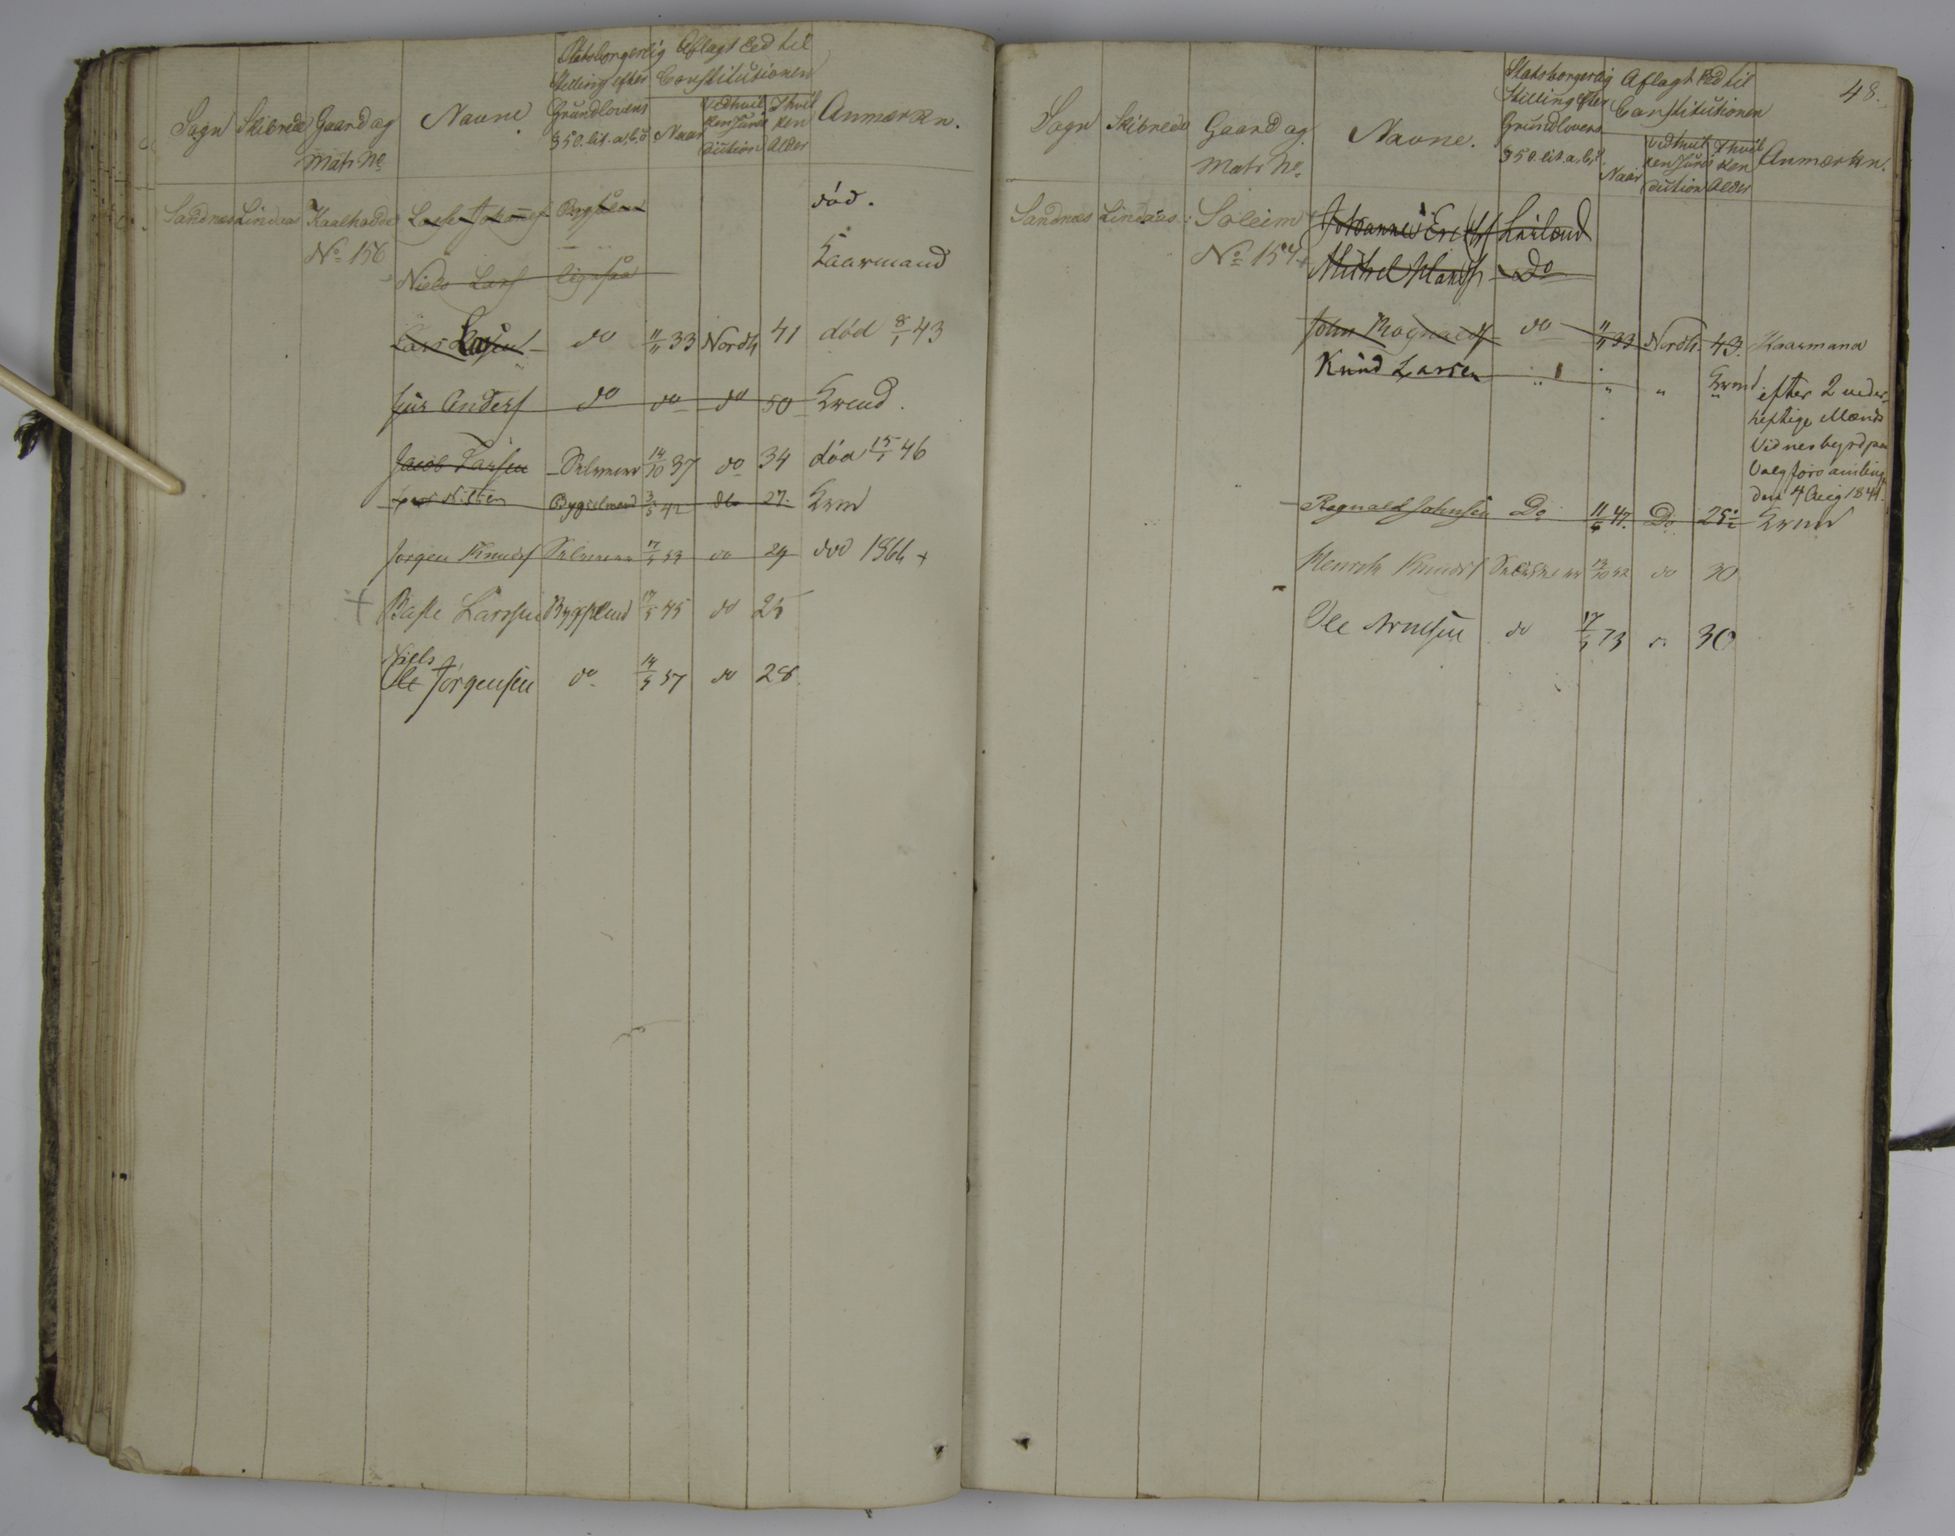 Sogn Skibrede Gaard og Matr No Navne Statsborgerlig Stilling efter Grundlovens § 50. lit. a, b, d Aflagt Eed til Constitutionen Naar Ved hvilken Jurisdiction I hvilken Alder Anmærkn.
Sandnæs Lindaas Kaalhadde Lasse Johannes Bygselmd død.
No 156
Niels Lars ligesaa Kaarmand
Lars Larsen do 11/11 33 Nordh 41 død 8/1 43
Siur Anders do do do 50 Krmd.
Jacob Larsen Selveier 14/10 37 do 34 død 15/1 46
Lars Nilsen Bygselmand 3/5 42 do 27. Krm
Jørgen Knuds Selveier 17/5 53 do 29 død 1866 +
Lassen Bygselmd 17/5 45 do 25
Niels
Ole Jørgensen do 14/5 57 do 28.
48.
Sogn Skibrede Gaard og Matr No. Navne. Statsborgerlig Stilling efter Grundlovens § 50. lit. a, b, d Aflagt Eed til Constitutionen Naar Ved hvilken Jurisdiction I hvilken Alder Anmærkn.
Sandnæs Lindaas. Soleim Johannes Erichs Leilænd
No 157 Michel Hans Do
John Rognalds do 11/11 33 Nordh. 43. Kaarmand
Knud Larsen " " " Krmd. efter 2 veder-
heftige Mænds
Vidnesbyrd paa
Valgforsamling
den 4 Aug 1841.
Rognald Johnsen Do 11/6 47. Do. 25 1/2 Krmd
Henrik Knuds Selveier 13/10 52 do 30
Ole Arnesen do 17/5 73 " 30